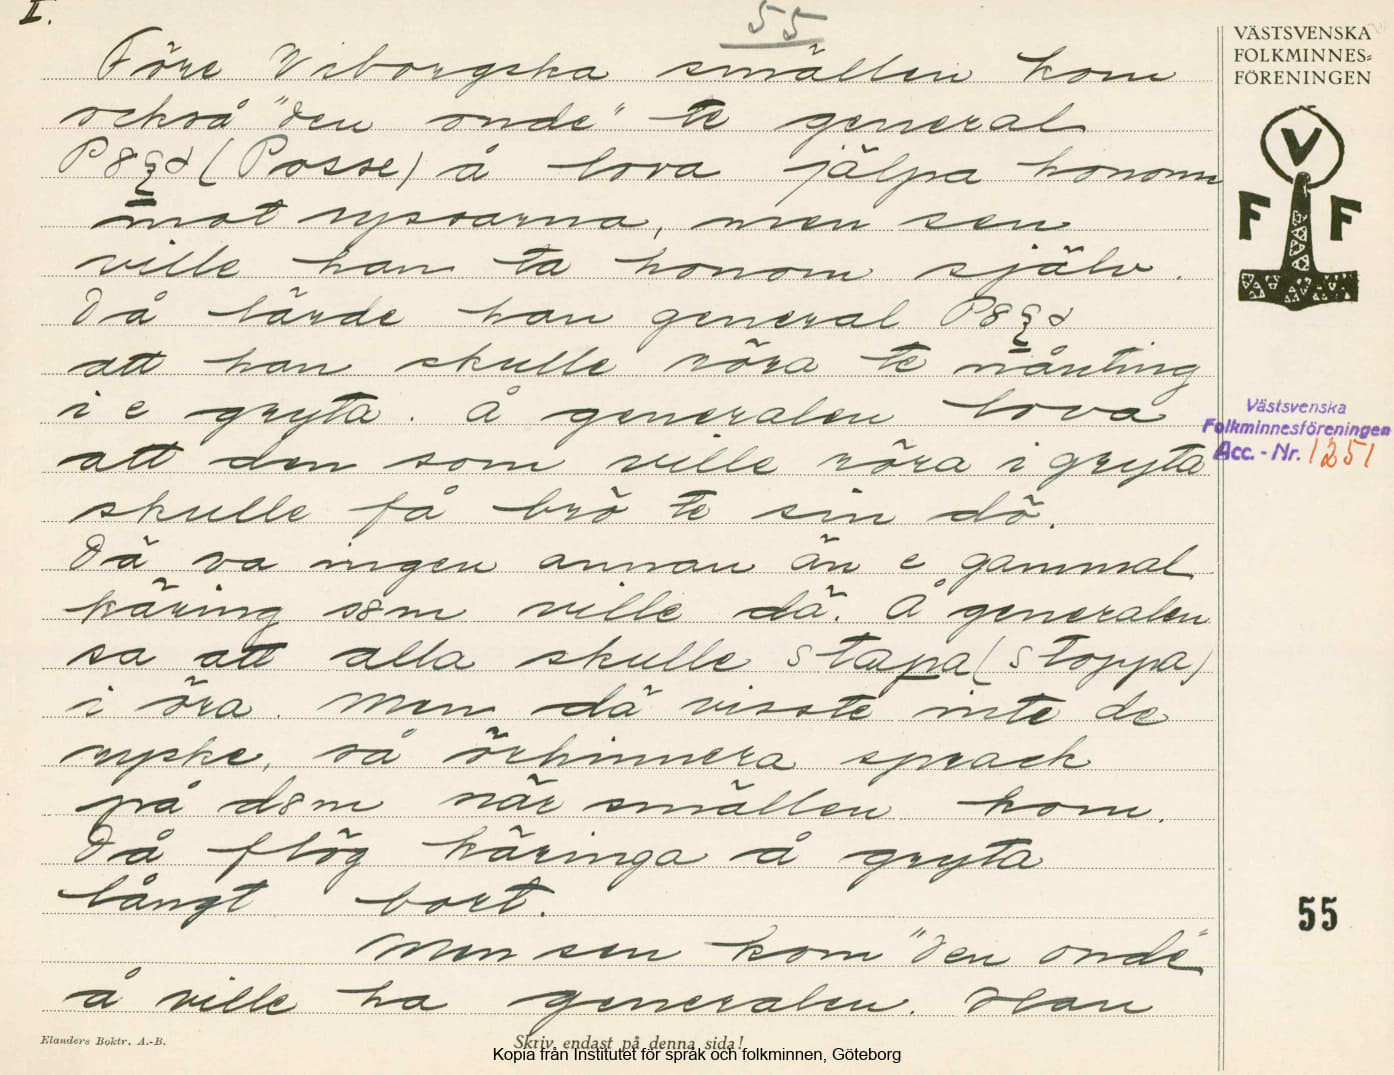 I.
55
VÄSTSVENSKA
FOLKMINNES=
FÖRENINGEN
V
F F
Före Viborgska smällen kom
också "den onde" te general
P8ξ∂ (Posse) å lova jälpa honom
mot rysarna, men sen
ville han ta honom själv.
Då lärde han general P8ξ∂
att han skulle röra te nånting
i e gryta. Å generalen lova
att den som ville röra i gryta
skulle få brö te sin dö.
Dä va ingen annan än e gammal
käring s8m ville dä. Å generalen
sa att alla skulle stapa (stoppa)
i öra. Men dä visste inte de
ryske, så örhinnera sprack
på d8m när smällen kom.
Då flög käringa å gryta
långt bort.
Men sen kom "den onde"
å ville ha generalen. Han
Västsvenska
Folkminnesföreningen
Acc. - Nr. 1251
55
Elanders Boktr. A.-B.
Skriv endast på denna sida!
Kopia från Institutet för språk och folkminnen, Göteborg